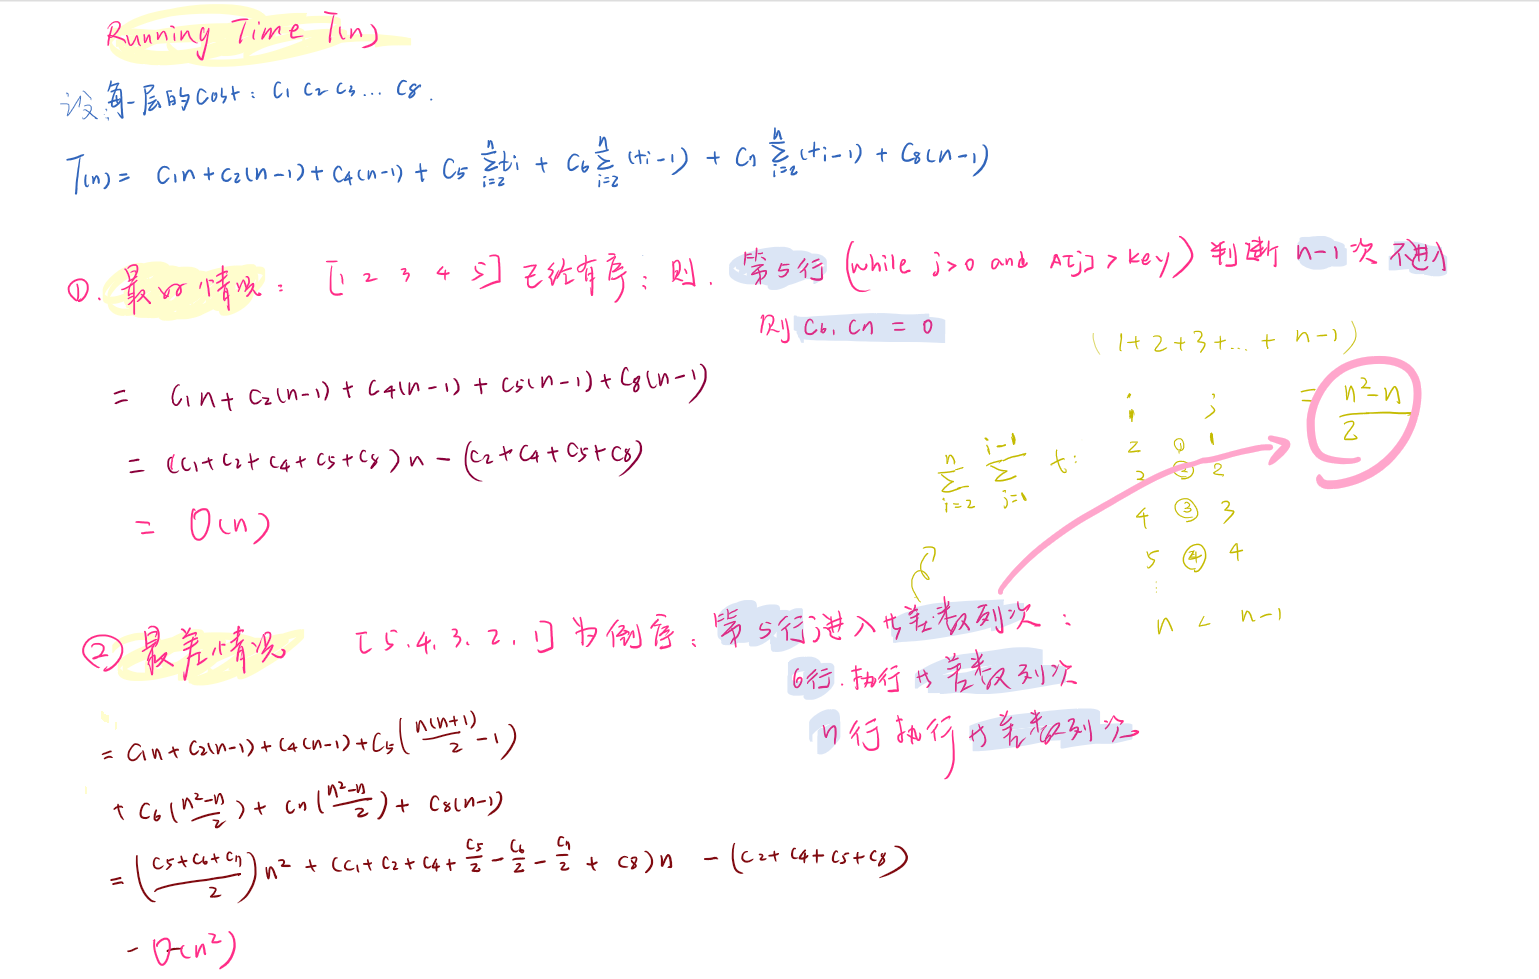 Running Time T(n)
设每一层的cost: C1 C2 C3 ... C8.
T(n) = C1n + C2(n-1) + C4(n-1) + C5 ∑_{i=2}^{n} ti + C6 ∑_{i=2}^{n} (ti-1) + C7 ∑_{i=2}^{n} (ti-1) + C8(n-1)
①. 最好情况: [1 2 3 4 5] 已经有序; 则. 第5行 (while j>0 and A[j] > key) 判断 n-1次 不进入
则 C6, C7 = 0
(1+2+3+...+ n-1)
= C1n + C2(n-1) + C4(n-1) + C5(n-1) + C8(n-1)
= \frac{n^2-n}{2}
i j
∑_{i=2}^{n} ∑_{j=1}^{i-1} t:
2 ① 1
3 ② 2
4 ③ 3
5 ④ 4
⋮
n < n-1
= (C1+C2+C4+C5+C8)n - (C2+C4+C5+C8)
= O(n)
② 最差情况 [5.4.3.2.1] 为倒序: 第5行进入 等差数列次:
6行.执行 等差数列次
7行执行 等差数列次
= C1n + C2(n-1) + C4(n-1) + C5(\frac{n(n+1)}{2} - 1)
+ C6(\frac{n^2-n}{2}) + C7(\frac{n^2-n}{2}) + C8(n-1)
= (\frac{C5+C6+C7}{2})n^2 + (C1+C2+C4+\frac{C5}{2}-\frac{C6}{2}-\frac{C7}{2}+C8)n - (C2+C4+C5+C8)
- O(n^2)